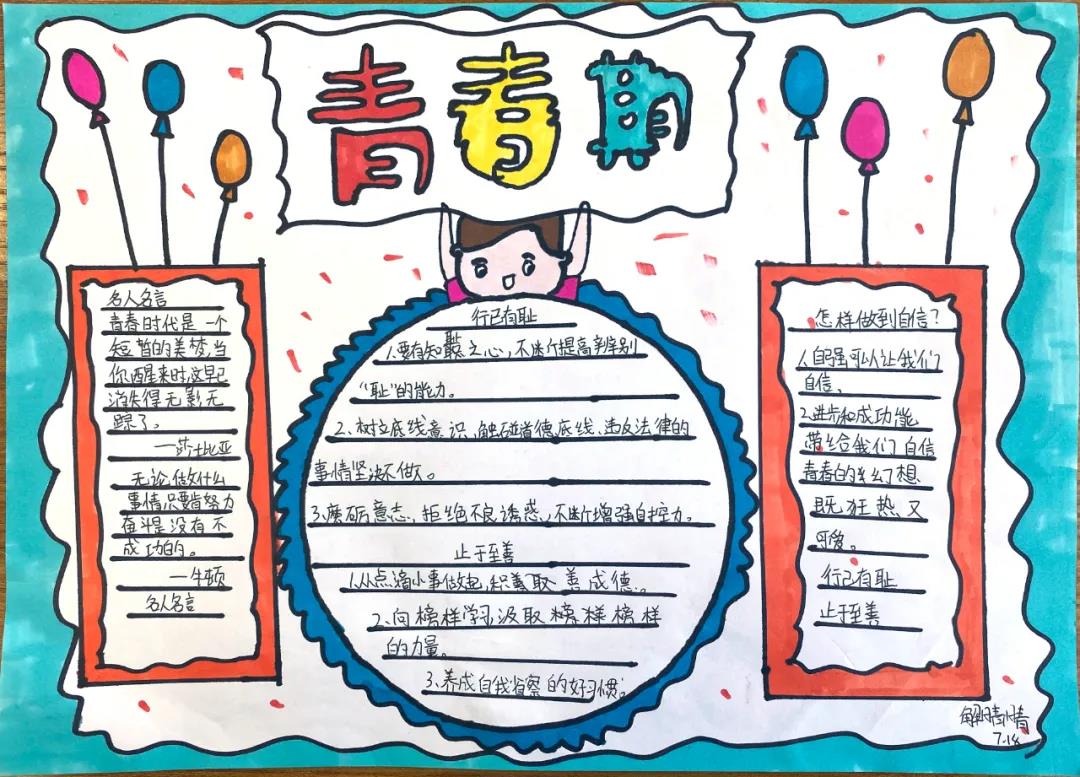 青春期
名人名言
青春时代是一个
短暂的美梦,当
你醒来时,这早已
消失得无影无
踪了。
—莎士比亚
无论做什么
事情只要肯努力
奋斗是没有不
成功的。
—牛顿
名人名言
行己有耻
1.要有知耻之心,不断提高辨别
“耻”的能力。
2、树立底线意识,触碰道德底线、违反法律的
事情坚决不做。
3.磨砺意志,拒绝不良诱惑,不断增强自控力。
止于至善
1.从点滴小事做起,积善取善成德。
2、向榜样学习,汲取榜样榜样
的力量。
3、养成自我省察的好习惯。
怎样做到自信?
1.自强可以让我们
自信、
2.进步和成功能
带给我们自信
青春的幻想
既狂热又
可爱。
行己有耻
止于至善
7.14